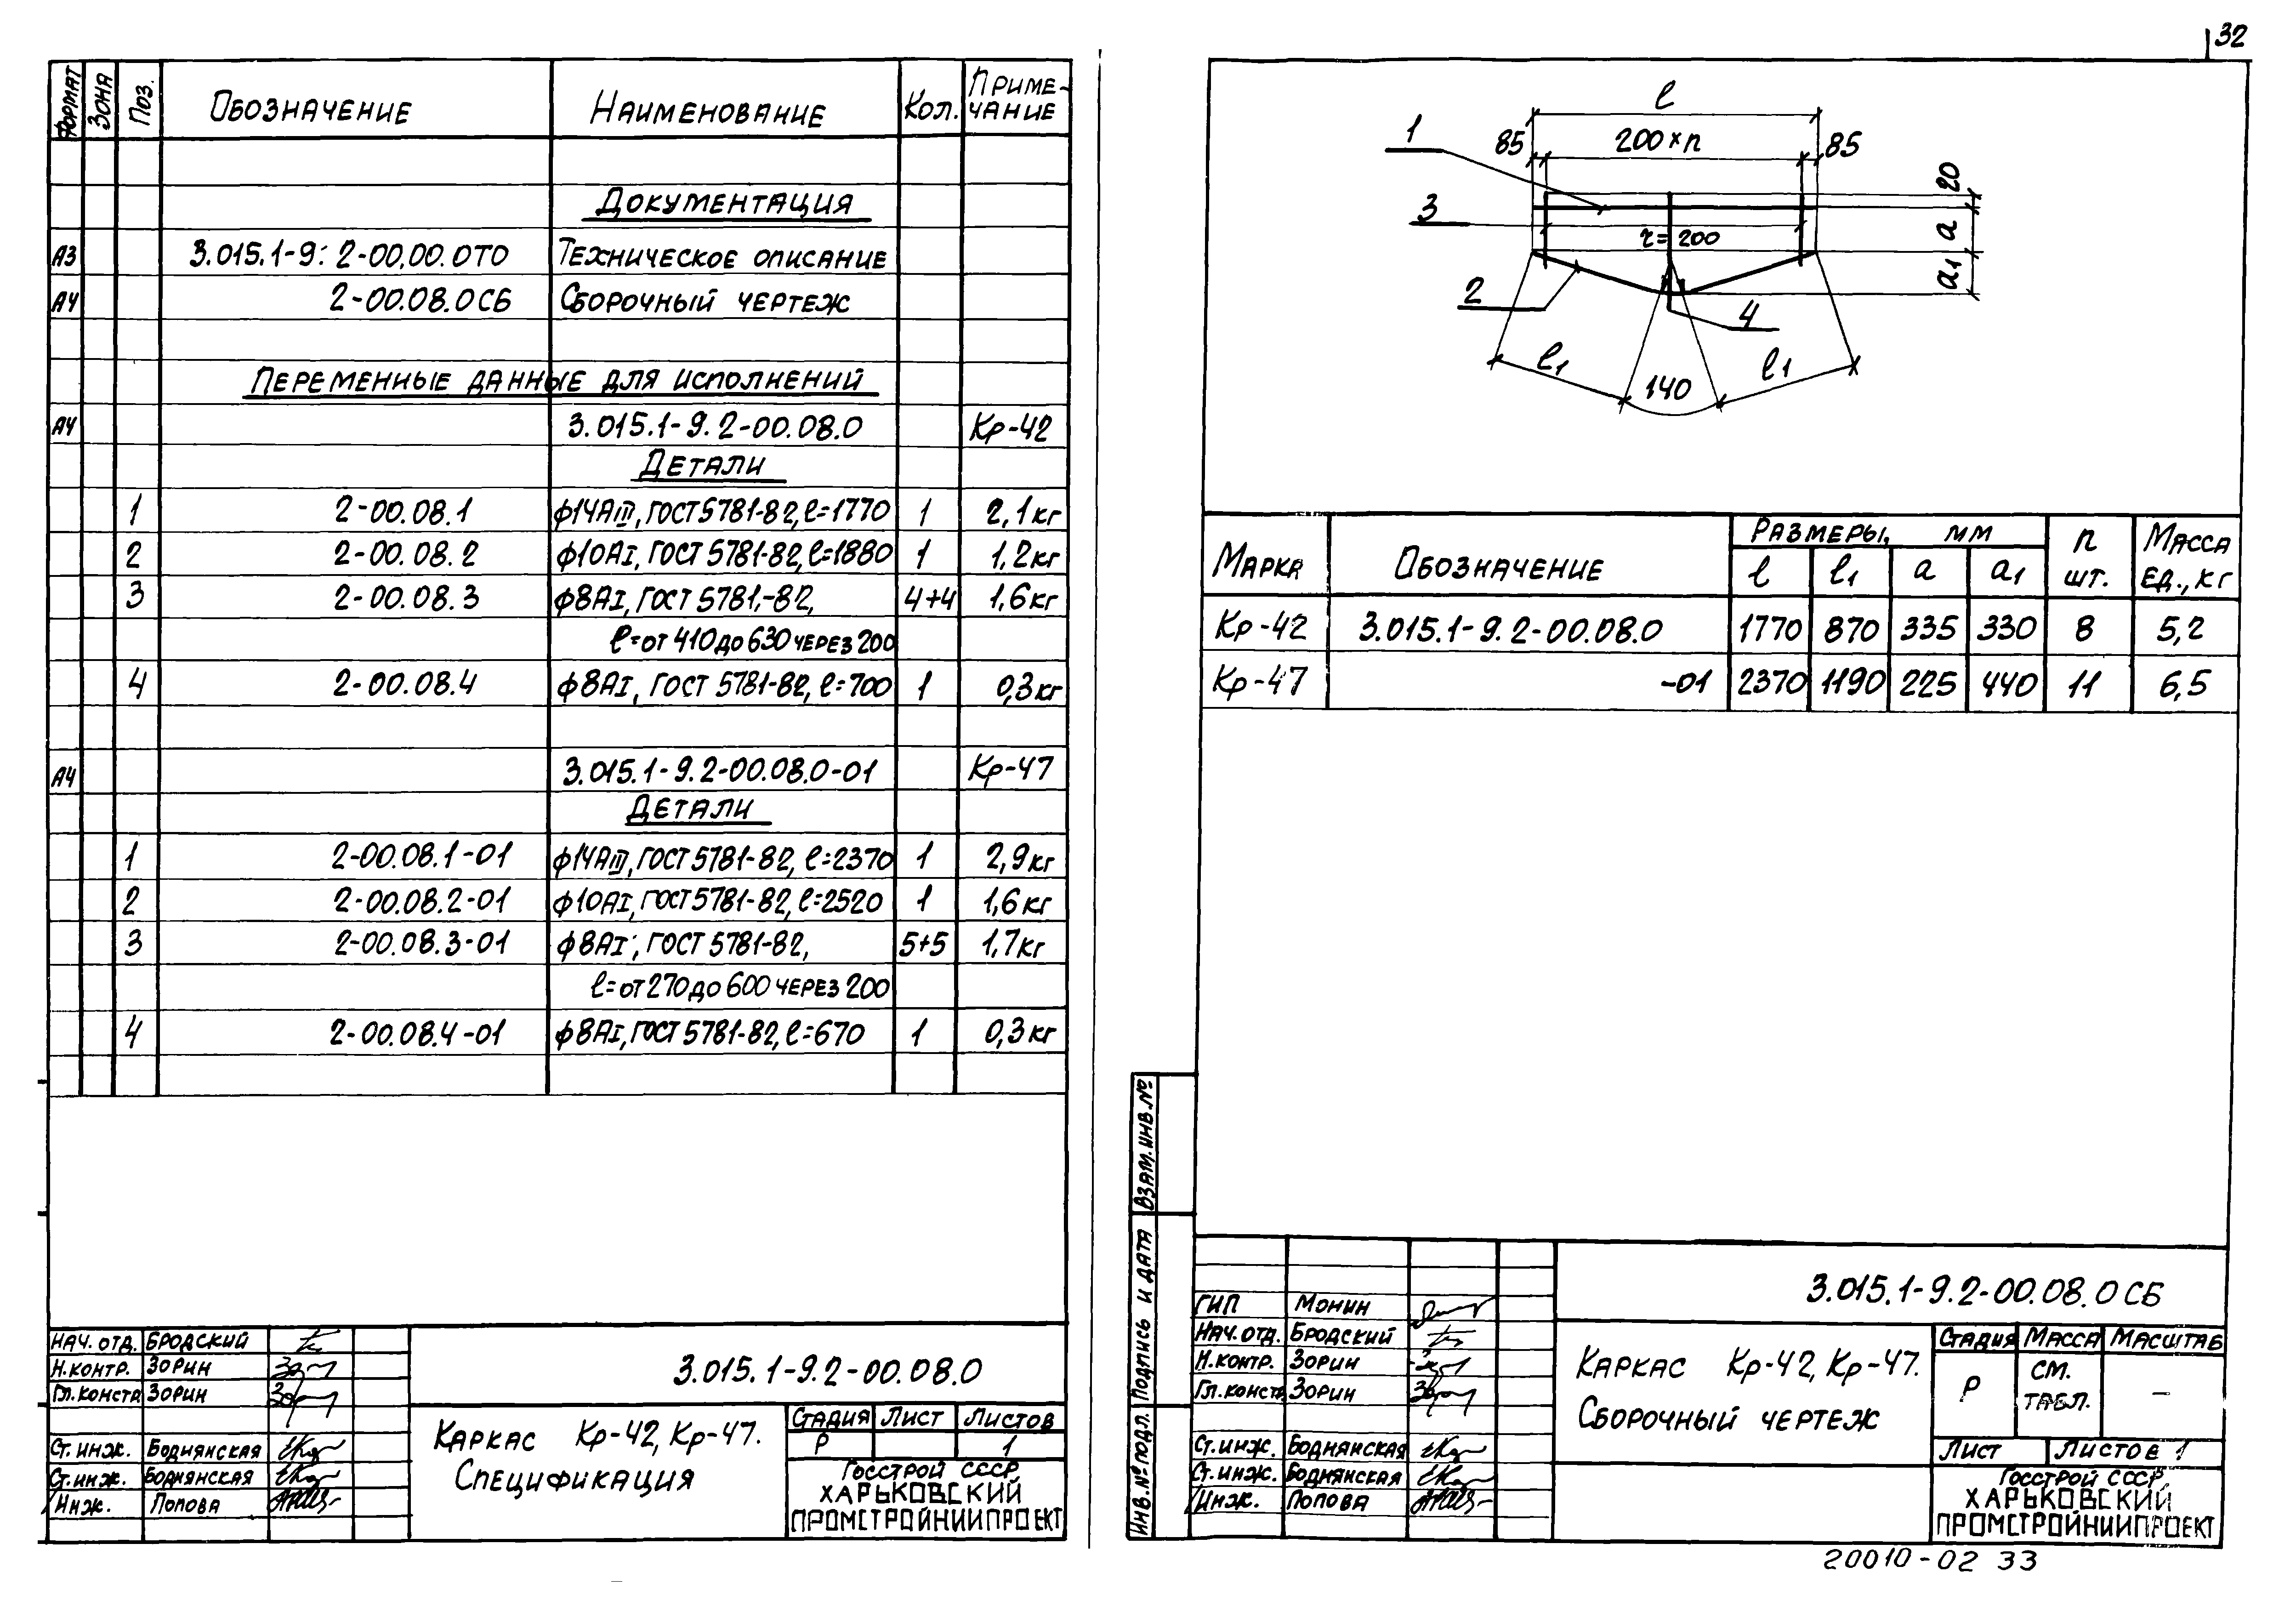 32
ФОРМАТ ЗОНА ПОЗ. ОБОЗНАЧЕНИЕ НАИМЕНОВАНИЕ КОЛ. ПРИМЕ-
ЧАНИЕ
ДОКУМЕНТАЦИЯ
А3 3.015.1-9: 2-00.00.0ТО ТЕХНИЧЕСКОЕ ОПИСАНИЕ
А4 2-00.08.0СБ СБОРОЧНЫЙ ЧЕРТЕЖ
ПЕРЕМЕННЫЕ ДАННЫЕ ДЛЯ ИСПОЛНЕНИЙ
А4 3.015.1-9.2-00.08.0 Кр-42
ДЕТАЛИ
1 2-00.08.1 ф14АIII, ГОСТ 5781-82, ℓ=1770 1 2,1кг
2 2-00.08.2 ф10АI, ГОСТ 5781-82, ℓ=1880 1 1,2кг
3 2-00.08.3 ф8АI, ГОСТ 5781,-82, 4+4 1,6кг
ℓ=от 410 до 630 через 200
4 2-00.08.4 ф8АI, ГОСТ 5781-82, ℓ=700 1 0,3кг
А4 3.015.1-9.2-00.08.0-01 Кр-47
ДЕТАЛИ
1 2-00.08.1-01 ф14АIII, ГОСТ 5781-82, ℓ=2370 1 2,9кг
2 2-00.08.2-01 ф10АI, ГОСТ 5781-82, ℓ=2520 1 1,6кг
3 2-00.08.3-01 ф8АI, ГОСТ 5781-82, 5+5 1,7кг
ℓ=от 270 до 600 через 200
4 2-00.08.4-01 ф8АI, ГОСТ 5781-82, ℓ=670 1 0,3кг
НАЧ. ОТД. БРОДСКИЙ
Н.КОНТР. ЗОРИН
ГЛ.КОНСТР ЗОРИН
СТ. ИНЖ. БОДНЯНСКАЯ
СТ. ИНЖ. БОДНЯНСКАЯ
ИНЖ. ПОПОВА
3.015.1-9.2-00.08.0
КАРКАС Кр-42, Кр-47.
СПЕЦИФИКАЦИЯ
СТАДИЯ ЛИСТ ЛИСТОВ
Р 1
ГОССТРОЙ СССР
ХАРЬКОВСКИЙ
ПРОМСТРОЙНИИПРОЕКТ
ℓ
85 200×n 85
1
20
3
а
r=200
а1
2
4
ℓ1 140 ℓ1
МАРКА ОБОЗНАЧЕНИЕ РАЗМЕРЫ, мм n
шт. МАССА
ЕД., КГ
ℓ ℓ1 а а1
Кр-42 3.015.1-9.2-00.08.0 1770 870 335 330 8 5,2
Кр-47 -01 2370 1190 225 440 11 6,5
ВЗАМ. ИНВ. №
ПОДПИСЬ И ДАТА
ИНВ. № ПОДЛ.
ГИП МОНИН
НАЧ. ОТД. БРОДСКИЙ
Н.КОНТР. ЗОРИН
ГЛ.КОНСТР ЗОРИН
СТ. ИНЖ. БОДНЯНСКАЯ
СТ. ИНЖ. БОДНЯНСКАЯ
ИНЖ. ПОПОВА
3.015.1-9.2-00.08.0 СБ
КАРКАС Кр-42, Кр-47.
СБОРОЧНЫЙ ЧЕРТЕЖ
СТАДИЯ МАССА МАСШТАБ
Р СМ.
ТАБЛ. —
ЛИСТ ЛИСТОВ 1
ГОССТРОЙ СССР
ХАРЬКОВСКИЙ
ПРОМСТРОЙНИИПРОЕКТ
20010-02 33